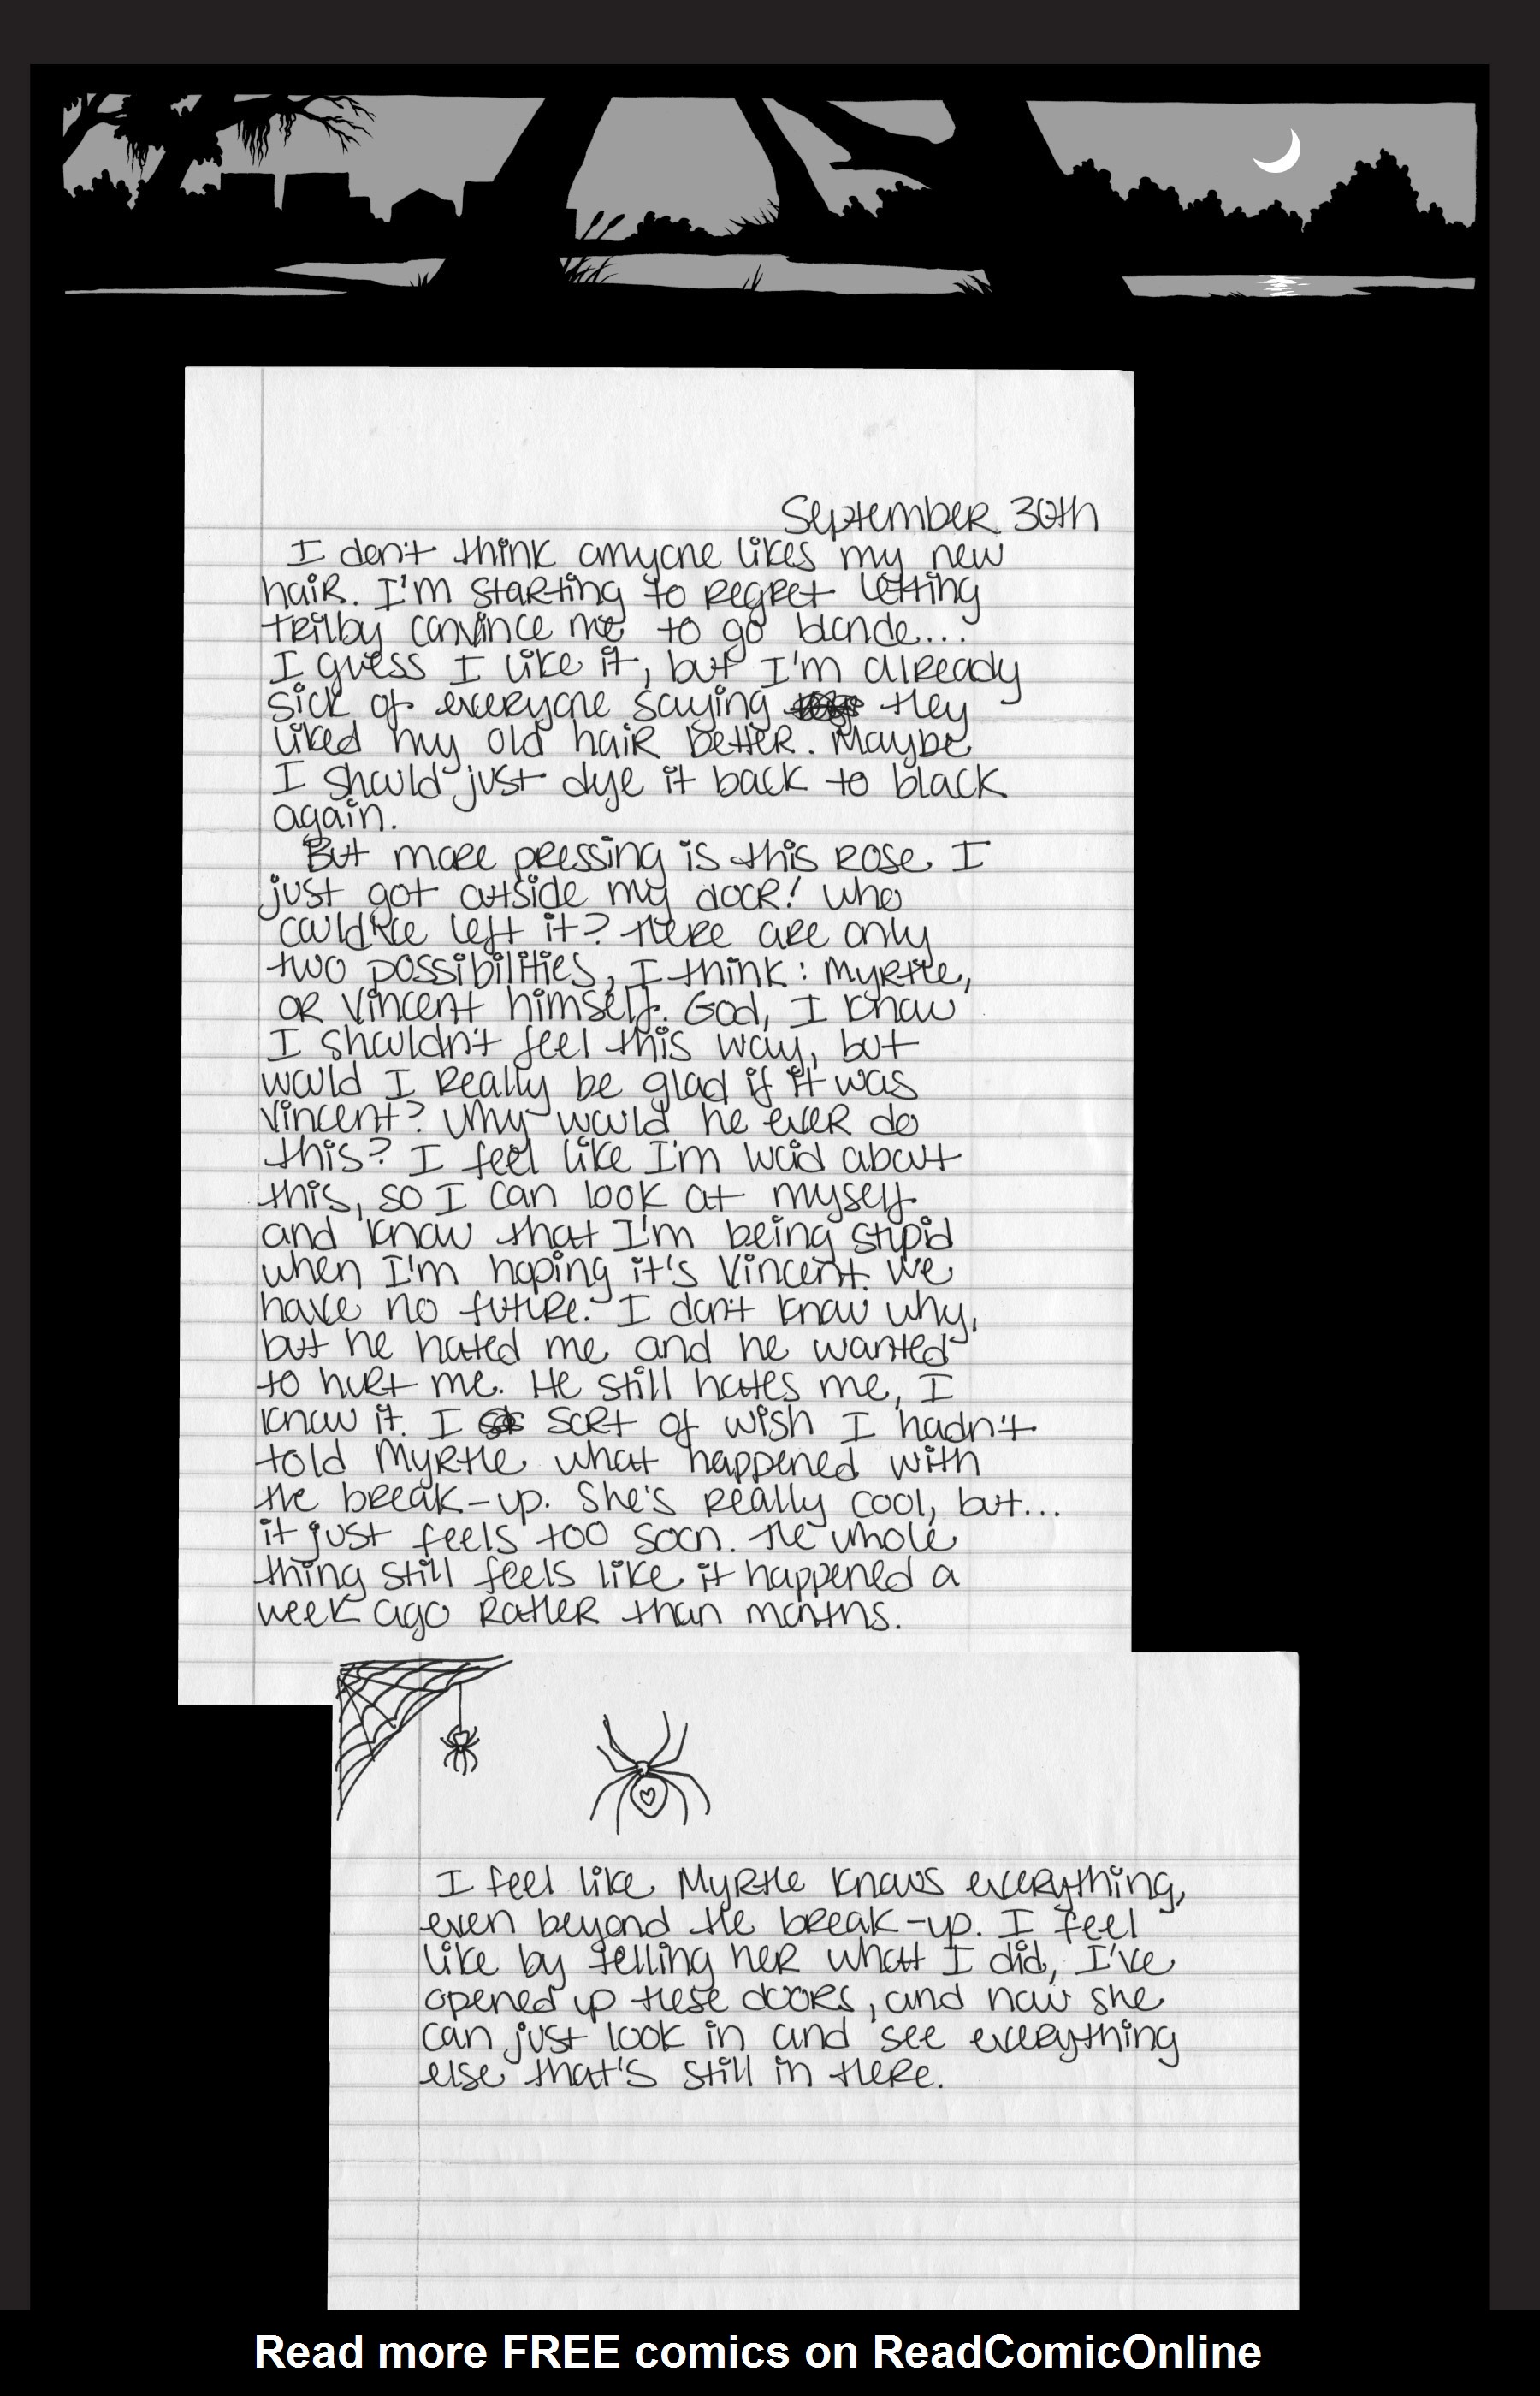 September 30th
I don't think anyone likes my new
hair. I'm starting to regret letting
Trilby convince me to go blonde...
I guess I like it, but I'm already
sick of everyone saying they
liked my old hair better. Maybe
I should just dye it back to black
again.
But more pressing is this rose I
just got outside my door! Who
could've left it? There are only
two possibilities, I think: Myrtle,
or Vincent himself. God, I know
I shouldn't feel this way, but
would I really be glad if it was
Vincent? Why would he ever do
this? I feel like I'm void about
this, so I can look at myself
and know that I'm being stupid
when I'm hoping it's Vincent. We
have no future. I don't know why,
but he hated me and he wanted
to hurt me. He still hates me, I
know it. I sort of wish I hadn't
told Myrtle what happened with
the break-up. She's really cool, but...
it just feels too soon. The whole
thing still feels like it happened a
week ago rather than months.
I feel like Myrtle knows everything,
even beyond the break-up. I feel
like by telling her what I did, I've
opened up these doors, and now she
can just look in and see everything
else that's still in there.
Read more FREE comics on ReadComicOnline